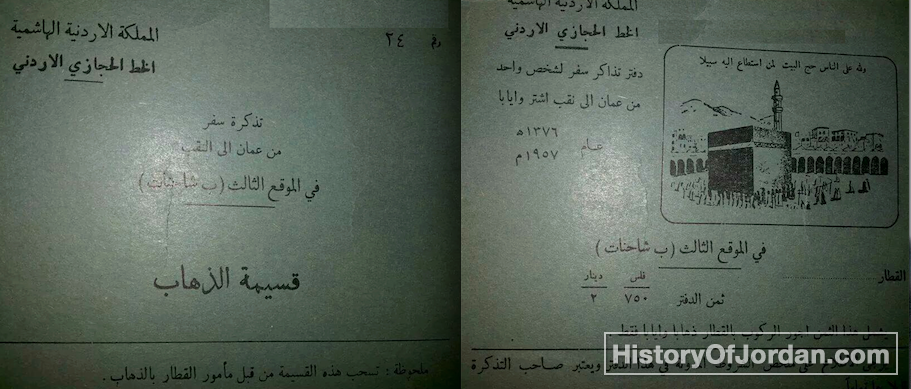 المملكة الاردنية الهاشمية
الخط الحجازي الاردني
رقم ٢٤
تذكرة سفر
من عمان الى النقب
في الموقع الثالث (ب شاحنات)
قسيمة الذهاب
ملحوظة : تسحب هذه القسيمة من قبل مأمور القطار بالذهاب.
المملكة الاردنية الهاشمية
الخط الحجازي الاردني
دفتر تذاكر سفر لشخص واحد
من عمان الى نقب اشتر وايابا
عام
١٣٧٦ه
١٩٥٧م
ولله على الناس حج البيت لمن استطاع اليه سبيلا
في الموقع الثالث (ب شاحنات)
القطار
فلس دينار
ثمن الدفتر ٧٥٠ ٢
بالقطار ذهابا وايابا فقط
في هذا الدفتر ويعتبر صاحب التذكرة
HistoryOfJordan.com